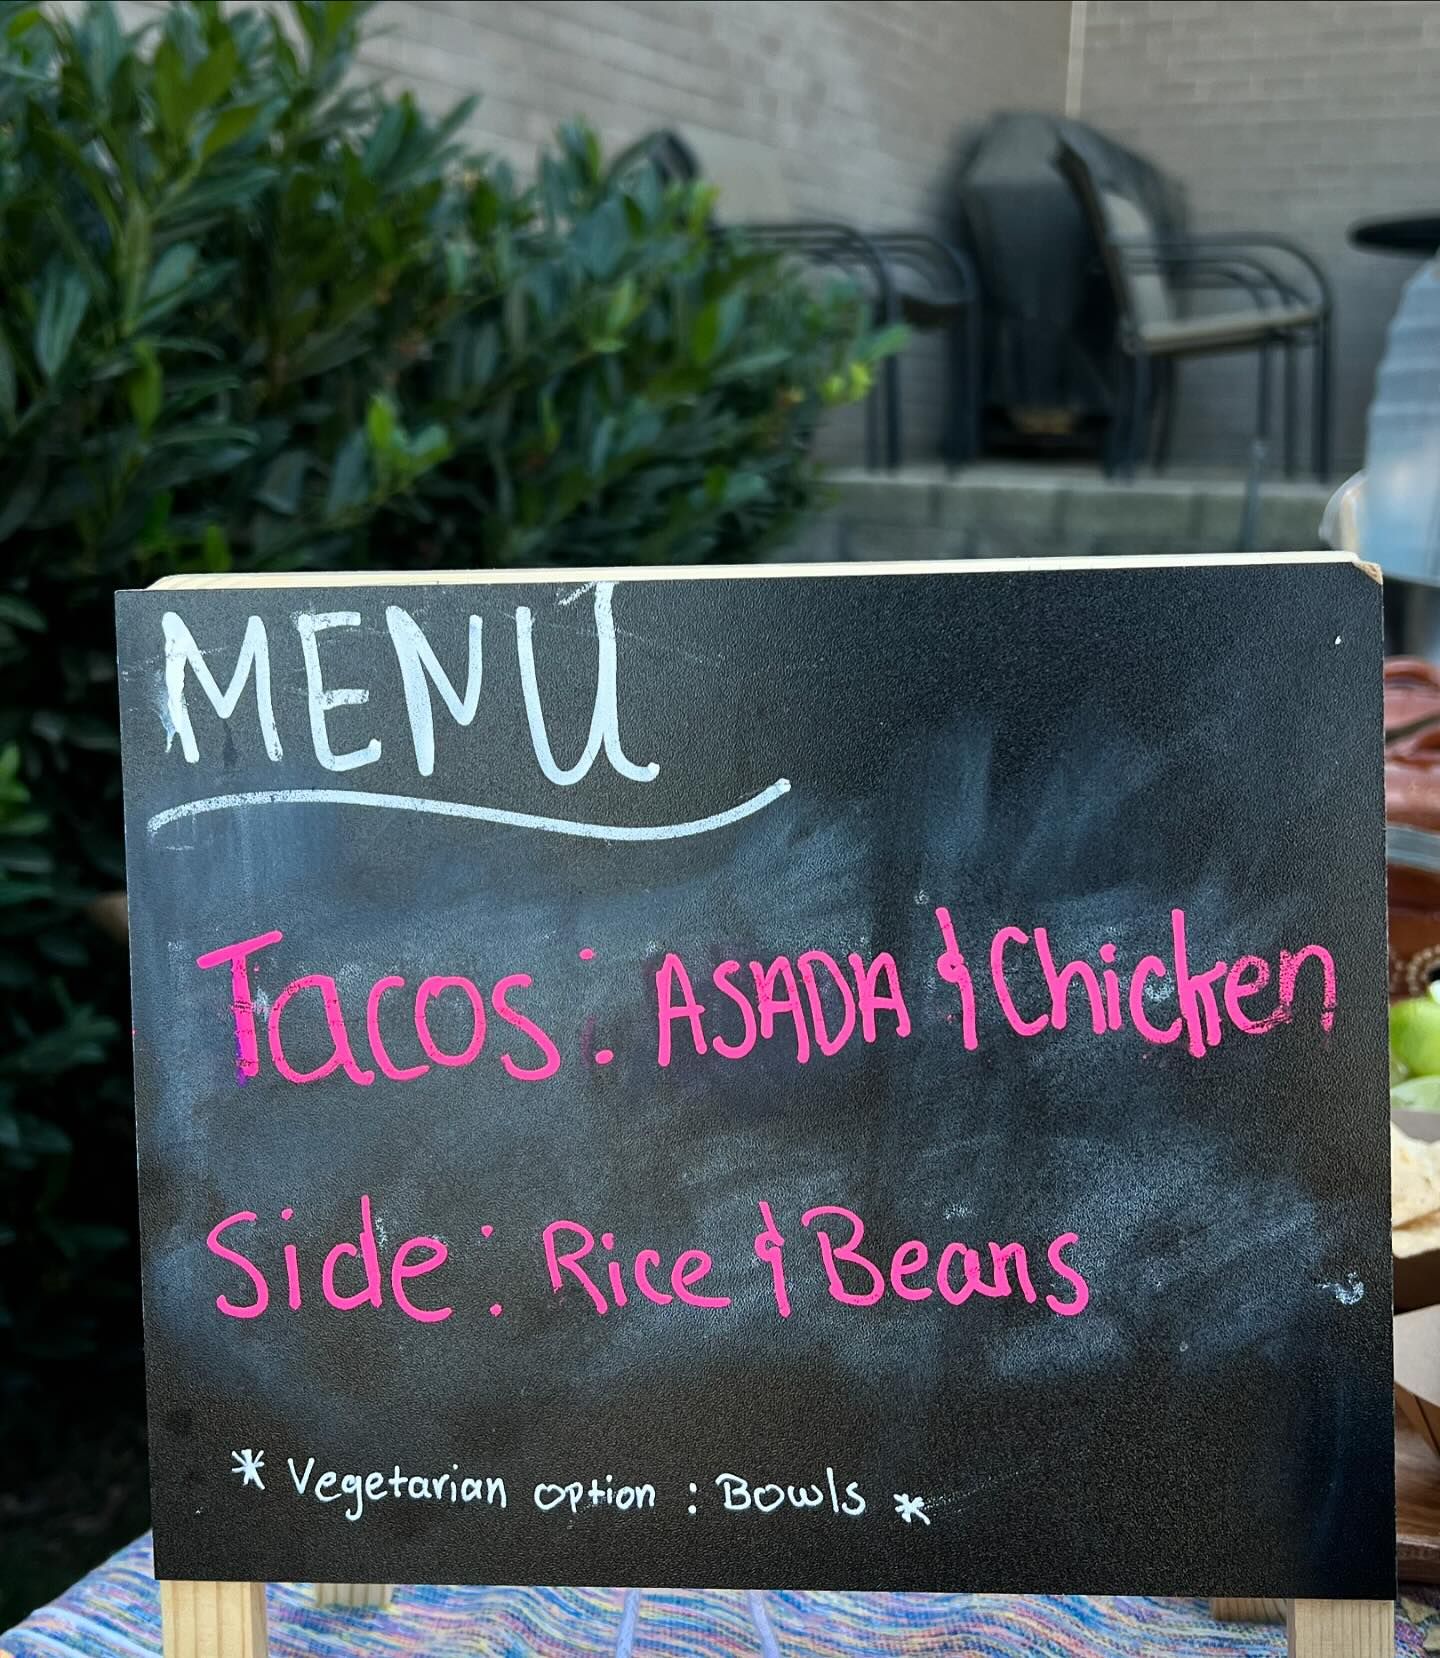 MENU
Tacos: ASADA & Chicken
Side: Rice & Beans
* Vegetarian option: Bowls *